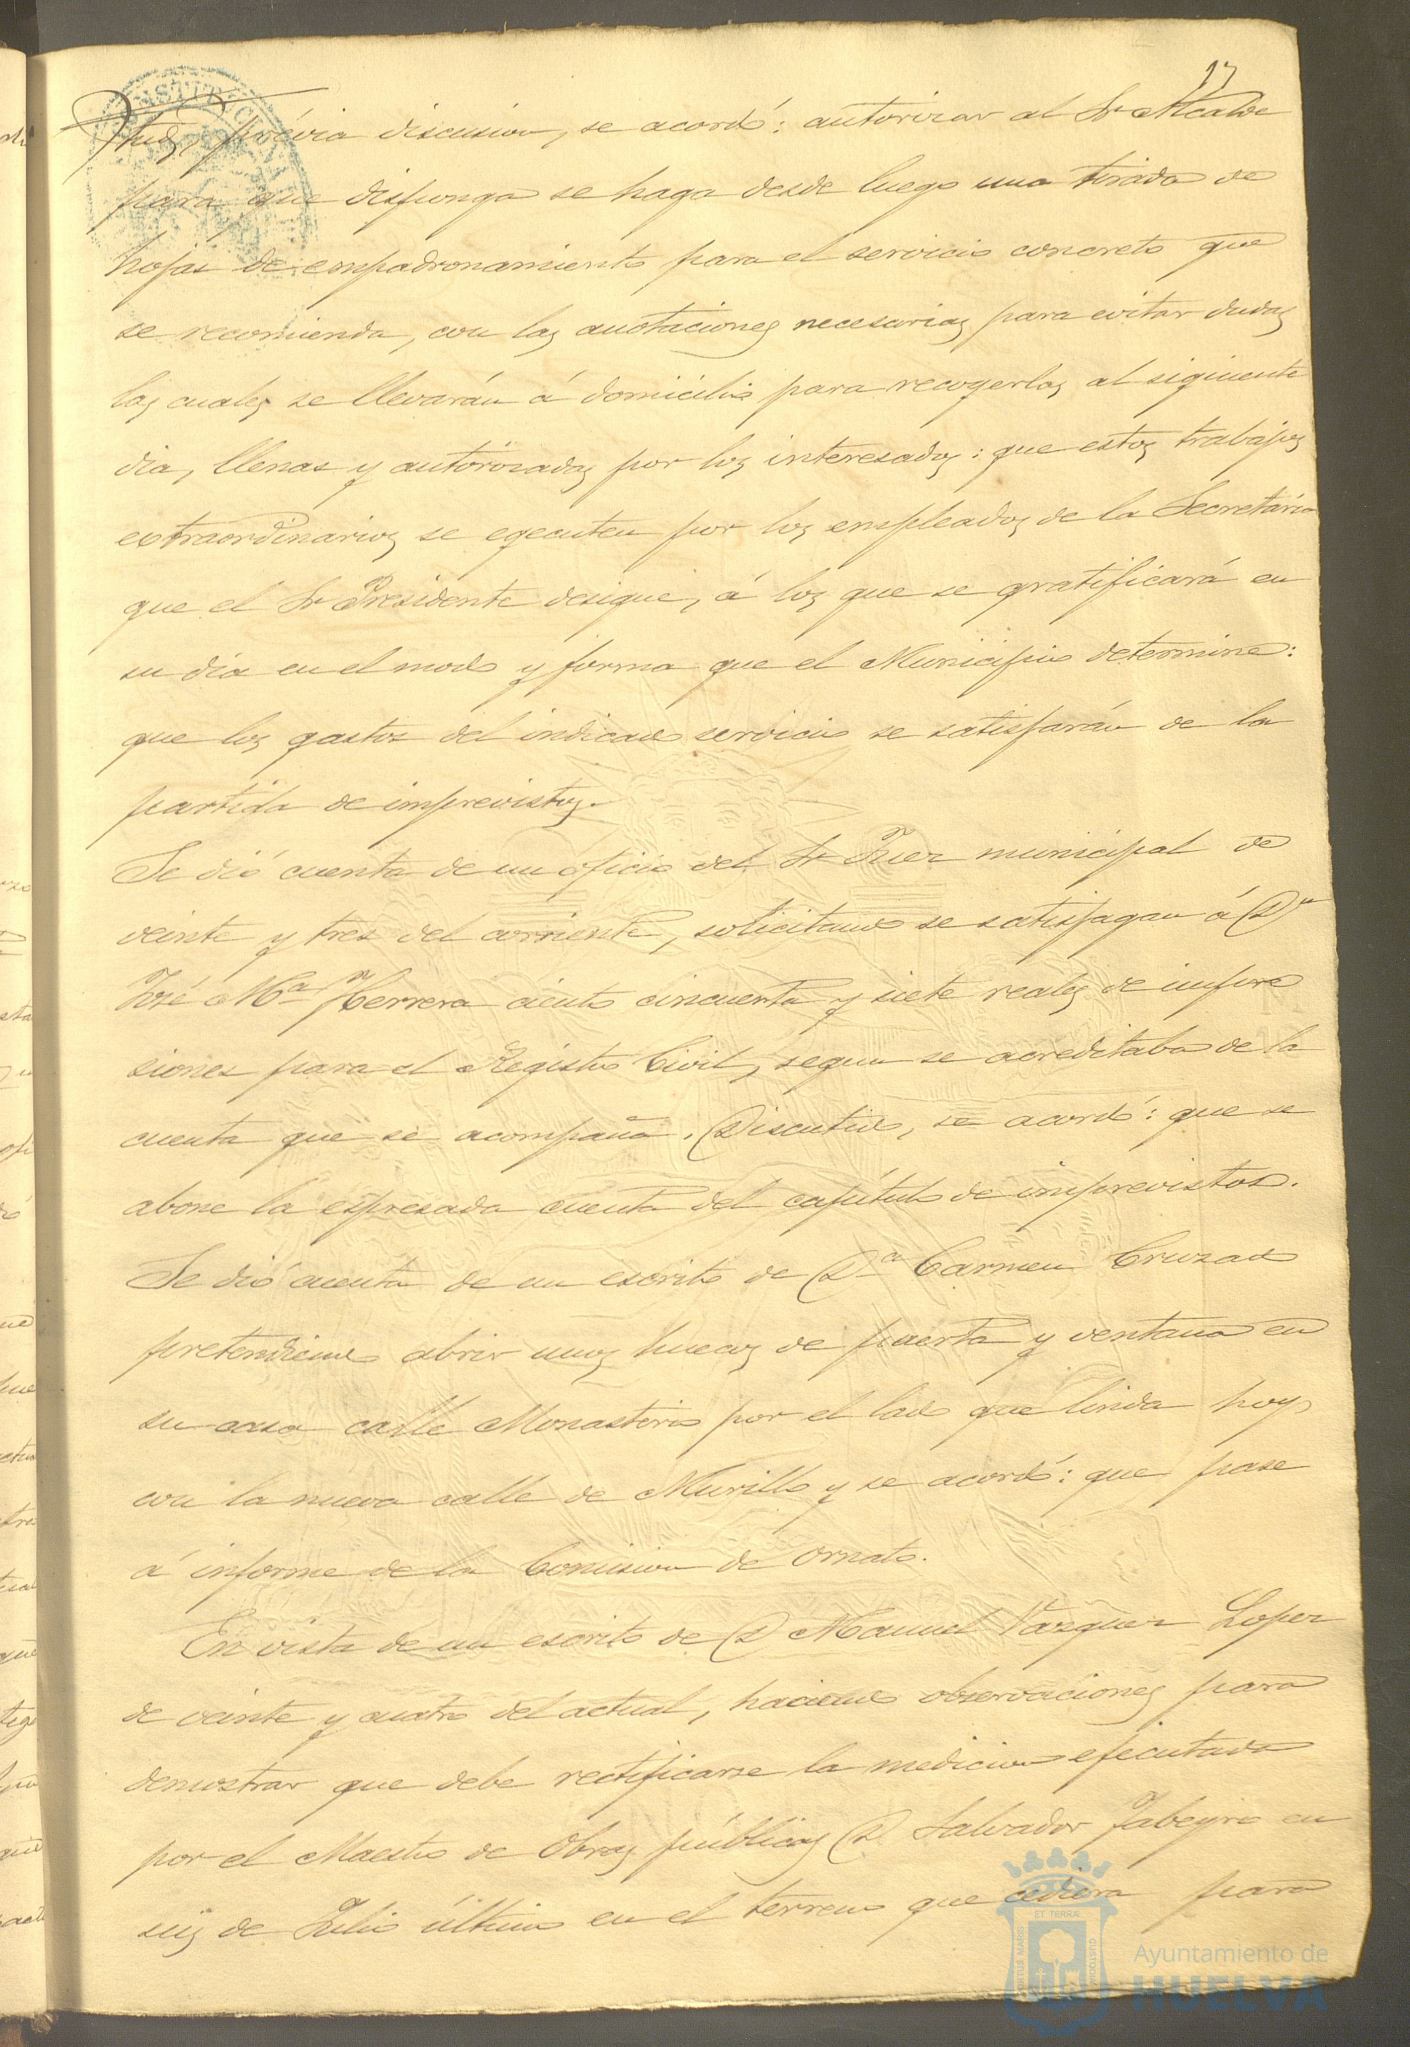 17
previa discusion, se acordó: autorizar al Sr Alcalde
para que disponga se haga desde luego una tirada de
hojas de empadronamiento para el servicio concreto que
se recomienda, con las anotaciones necesarias para evitar dudas
las cuales se llevarán á domicilio para recogerlas al siguiente
dia, llenas y autorizadas por los interesados: que estos trabajos
extraordinarios se egecuten por los empleados de la Secretaria
que el Sr Presidente designe, á los que se gratificará en
su dia en el modo y forma que el Municipio determine:
que los gastos del indicado servicio se satisfarán de la
partida de imprevistos.
Se dió cuenta de un oficio del Sr Juez municipal de
veinte y tres del corriente, solicitando se satisfagan á Dn
José Ma Herrera ciento cincuenta y siete reales de impre
siones para el Registro Civil, segun se acreditaba de la
cuenta que se acompaña. Discutido, se acordó: que se
abone la espresada cuenta del capítulo de imprevistos.
Se dió cuenta de un escrito de Da Carmen Cruzado
pretendiendo abrir unos huecos de puerta y ventana en
su casa calle Monasterio por el lado que linda hoy
con la nueva calle de Murillo y se acordó: que pase
á informe de la Comision de Ornato.
En vista de un escrito de D Manuel Vazquez Lopez
de veinte y cuatro del actual, haciendo observaciones para
demostrar que debe rectificarse la medicion ejecutada
por el Maestro de Obras públicas D. Salvador Jabeyro en
seis de Julio último en el terreno que cediera para
PORTUS MARIS
ET TERRAE
CUSTODIA
Ayuntamiento de
HUELVA